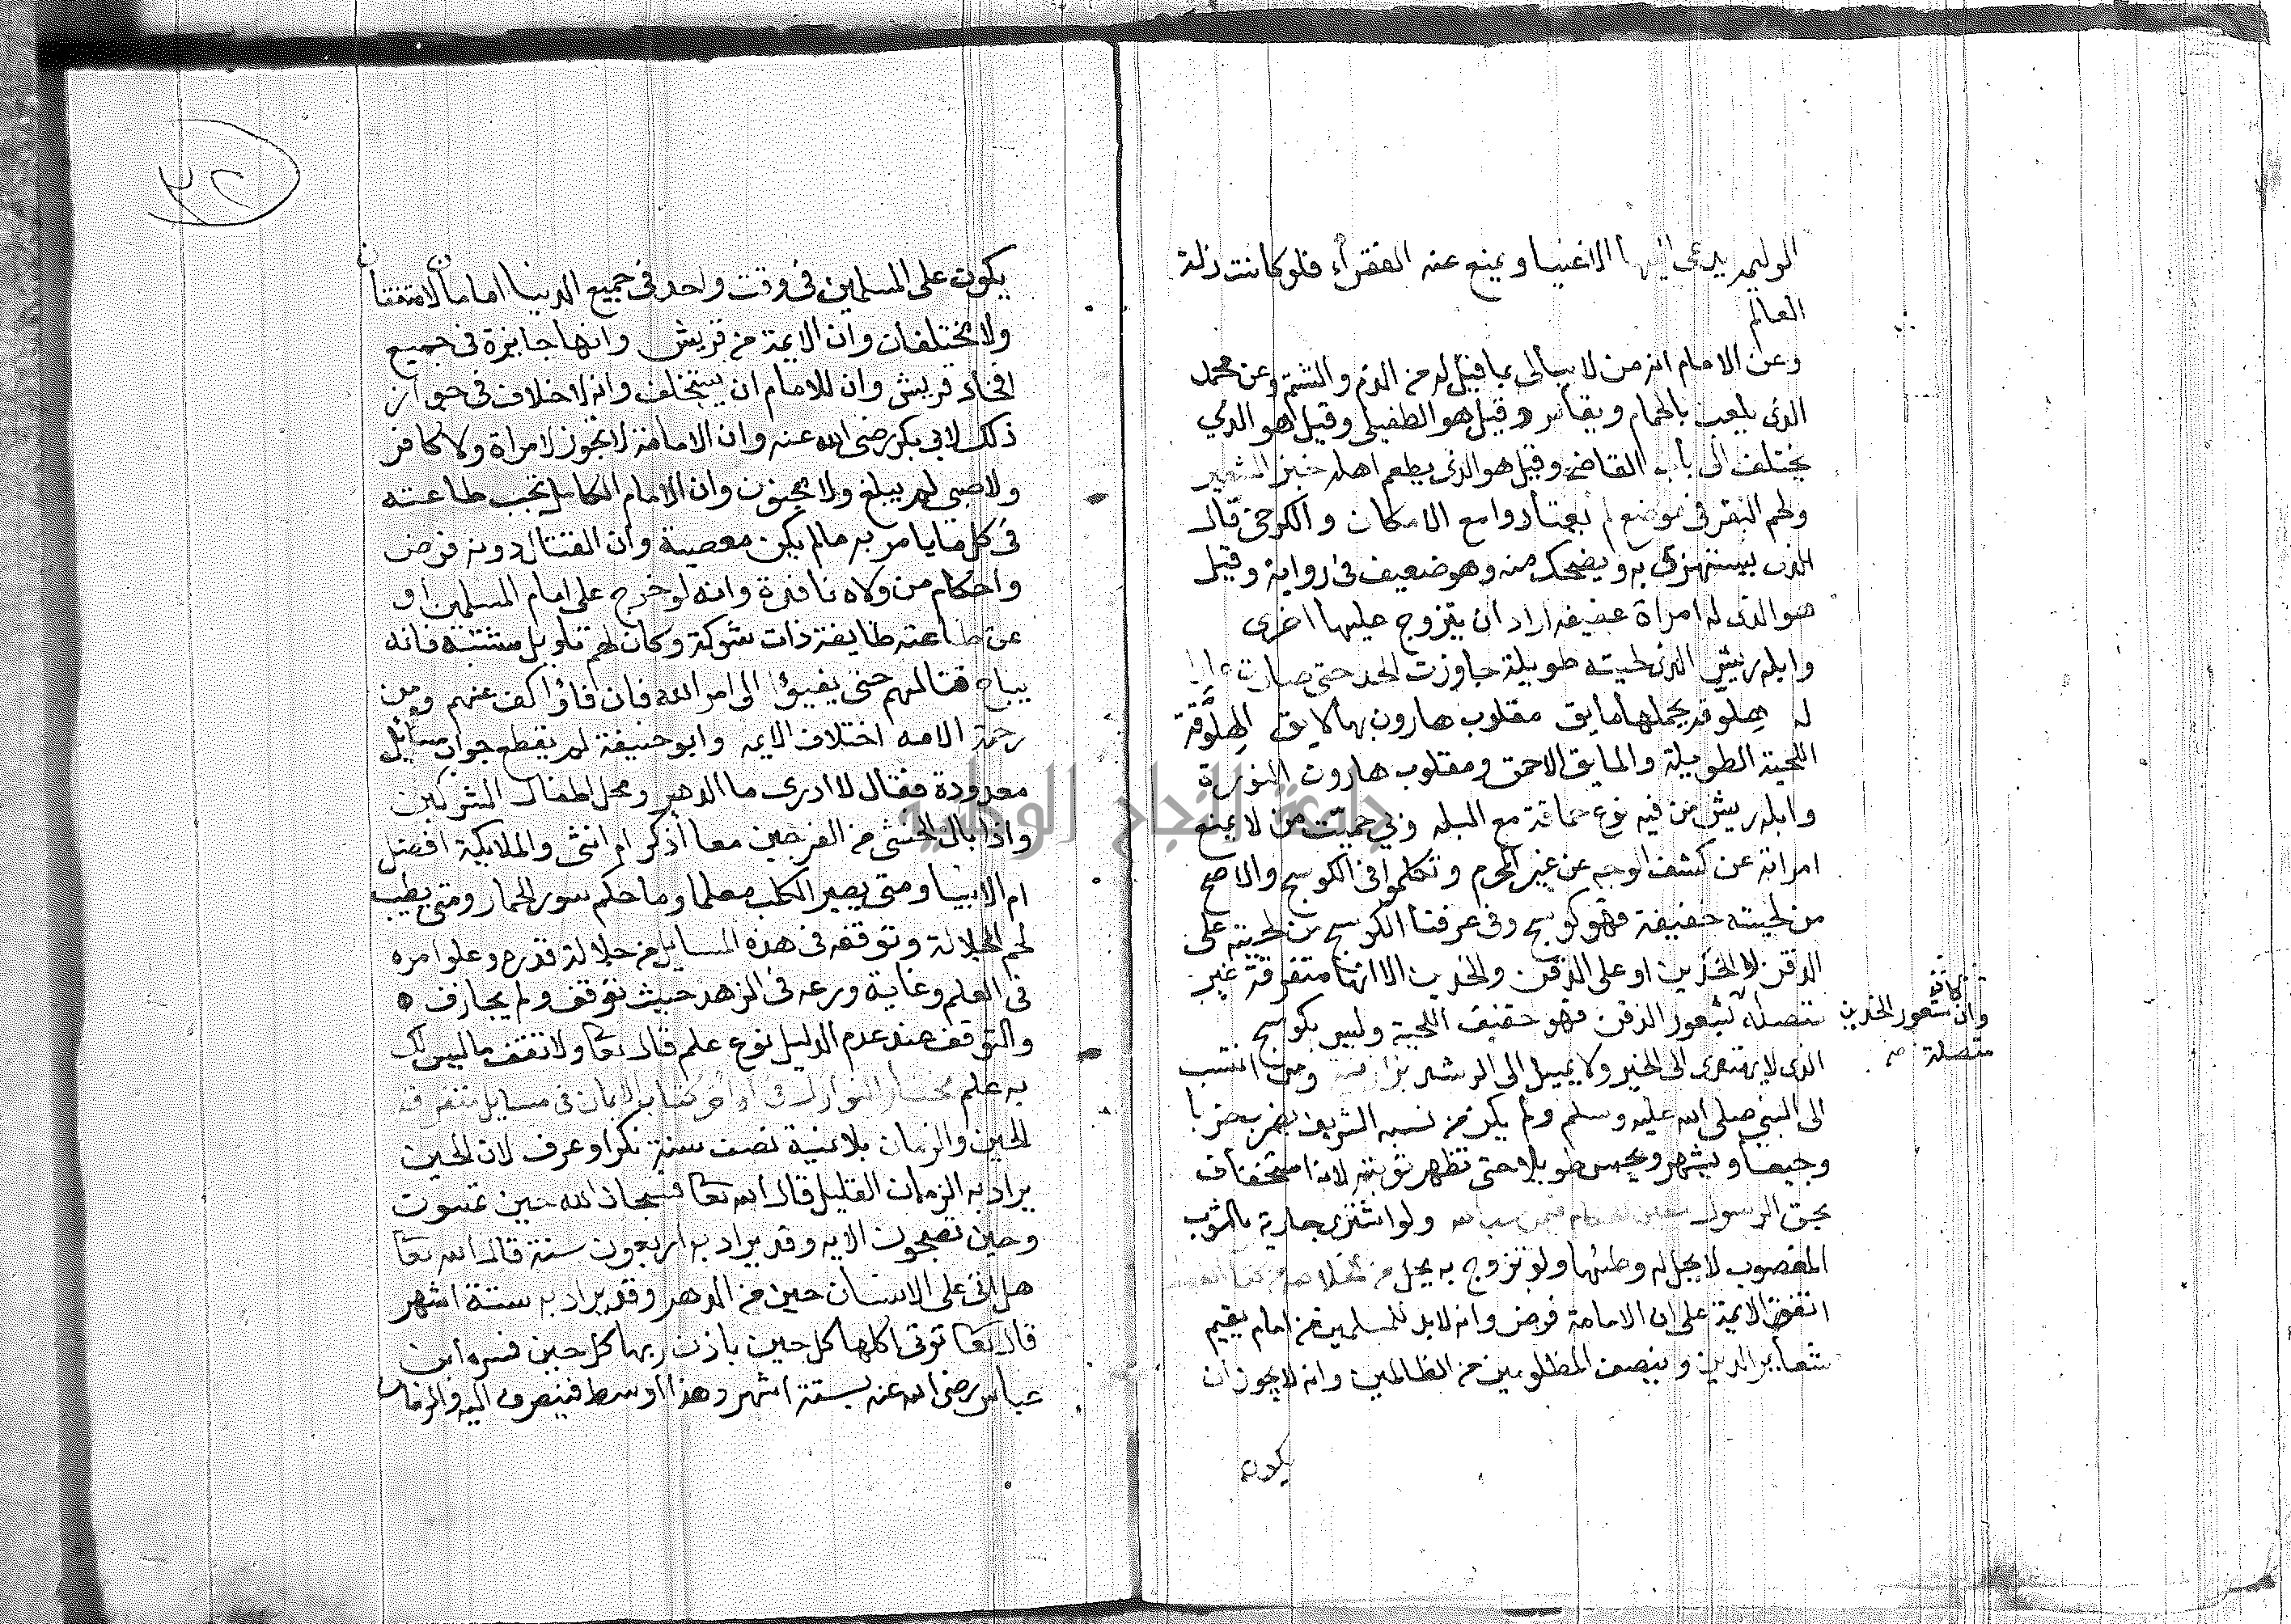 الوليمه يدعى اليها الاغنيا ويمنع عنه الفقرأ، فلو كانت زلة
العالم
وعن الامام انه من لا يبالى بما قيل له من الذم والشتم وعن محمد
الذى يلعب بالحمام ويقامر وقيل هو الطفيلى وقيل هو الذي
يختلف الى باب القاضى وقيل هو الذى يطعم اهله خبز الشعير
ولحم البقر فى موضع لم يعتادوا مع الامكان والكرخى قال
الذى يستهزى به ويضحك منه وهو ضعيف فى رواية وقيل
هو الذى له امراة عفيفه اراد ان يتزوج عليها اخرى
وابله ريش الذى لحيته طويلة جاوزت الحد حتى صارت
له هلوقه يحملها مايق مقلوب هارون بها لايق الهلوقة
اللحية الطويلة والمايق الاحمق ومقلوب هارون النورة
وابله ريش من فيه نوع حماقة مع البله وبي حميت من لا يمنع
امراته عن كشف الوجه عن غير المحرم وتكلموا فى الكوسج والاصح
من لحيته خفيفة فهو كوسج وفى عرفنا الكوسج من لحيته على
الذقن لا الخدين او على الذقن والخدين الا انها متفرقة غير
متصلة بشعور الذقن فهو خفيف اللحية وليس بكوسج
وان كانت شعور الخدين
متصلة صح
الذى لا يهتدى الى الخير ولا يميل الى الرشد ومن انتسب
الى النبي صلى الله عليه وسلم ولم يكن من نسبه الشريف يضرب ضربا
وجيعا ويشهر ويحبس طويلا حتى تظهر توبته لانه استخفاف
بحق الرسول ولو اشترى جارية بالثوب
المغصوب لا يحل له وطئها ولو تزوج به يحل من
اتفق الايمة على ان الامامة فرض وانه لا بد للمسلمين من امام يقيم
شعاير الدين وينصف المظلومين من الظالمين وانه لا يجوز ان
يكون
٢٢
يكون على المسلمين فى وقت واحد فى جميع الدنيا امامان لا متفقان
ولا مختلفان وان الايمة من قريش وانها جايزة فى جميع
افخاذ قريش وان للامام ان يستخلف وانه لا خلاف فى جواز
ذلك لابى بكر رضى الله عنه وان الامامة لا تجوز لامراة ولا كافر
ولا صبى لم يبلغ ولا مجنون وان الامام الكامل تجب طاعته
فى كل ما يامر به مالم يكن معصية وان القتال دونه فرض
واحكام من ولاه نافذة وانه لو خرج على امام المسلمين او
عن طاعته طايفة ذات شوكة وكان لهم تاويل مشتبه فانه
يباح قتالهم حتى يفيؤا الى امر الله فان فاؤا كف عنهم ومن
رحمة الامه اختلاف الايمه وابو حنيفة لم يقطع جواب مسائل
معدودة فقال لا ادرى ما الدهر ومحل اطفال المشركين
واذا بال الخنثى من الفرجين معا أذكر ام انثى والملايكة افضل
ام الانبيا ومتى يصير الكلب معلما وما حكم سور الحمار ومتى يطيب
لحم الجلالة وتوقفه فى هذه المسايل من جلالة قدره وعلو امره
فى العلم وغاية ورعه فى الزهد حيث توقف ولم يجازف ٥
والتوقف عند عدم الدليل نوع علم قال تعا ولا تقف ما ليس لك
به علم مختار النوازل فى اواخر كتاب الايمان فى مسايل متفرقة
الحين والزمان بلا نية نصف سنة نكر او عرف لان الحين
يراد به الزمان القليل قال الله تعا فسبحان الله حين تمسون
وحين تصبحون الايه وقد يراد به اربعون سنة قال الله تعا
هل اتى على الانسان حين من الدهر وقد يراد به ستة اشهر
قال تعا توتى اكلها كل حين باذن ربها كل حين فسره ابن
عباس رضى الله عنه بستة اشهر وهذا اوسط فينصرف اليه والزمان
جامعة النجاح الوطنية